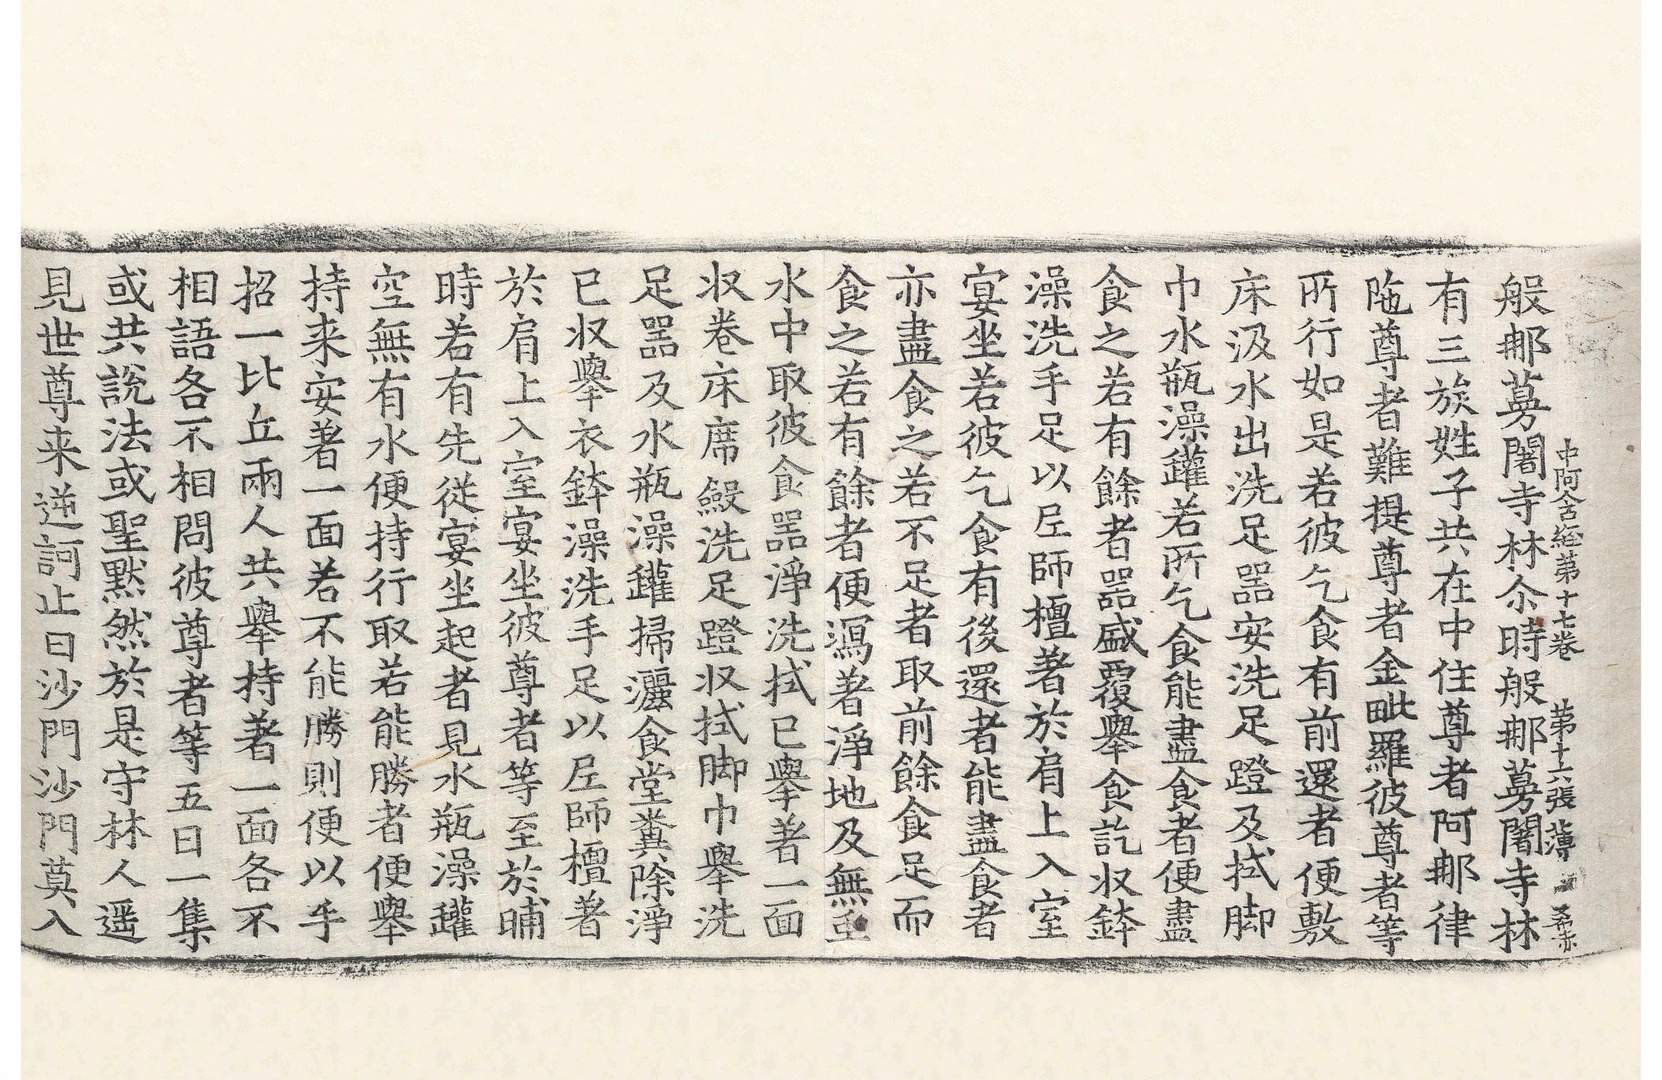 中阿含経第十七卷 第十六張 薄
般那蔓闍寺林尒時般那蔓闍寺林
有三族姓子共在中住尊者阿那律
陁尊者難提尊者金毗羅彼尊者等
所行如是若彼乞食有前還者便敷
床汲水出洗足器安洗足蹬及拭脚
巾水瓶澡罐若所乞食能盡食者便盡
食之若有餘者器盛覆舉食訖収鉢
澡洗手足以尼師檀著於肩上入室
宴坐若彼乞食有後還者能盡食者
亦盡食之若不足者取前餘食足而
食之若有餘者便瀉著淨地及無虫
水中取彼食器淨洗拭已舉著一面
収卷床席斂洗足蹬収拭脚巾舉洗
足器及水瓶澡罐掃灑食堂糞除淨
已収舉衣鉢澡洗手足以尼師檀著
於肩上入室宴坐彼尊者等至於晡
時若有先從宴坐起者見水瓶澡罐
空無有水便持行取若能勝者便舉
持来安著一面若不能勝則便以手
招一比丘兩人共舉持著一面各不
相語各不相問彼尊者等五日一集
或共說法或聖黙然於是守林人遥
見世尊来逆訶止曰沙門沙門莫入